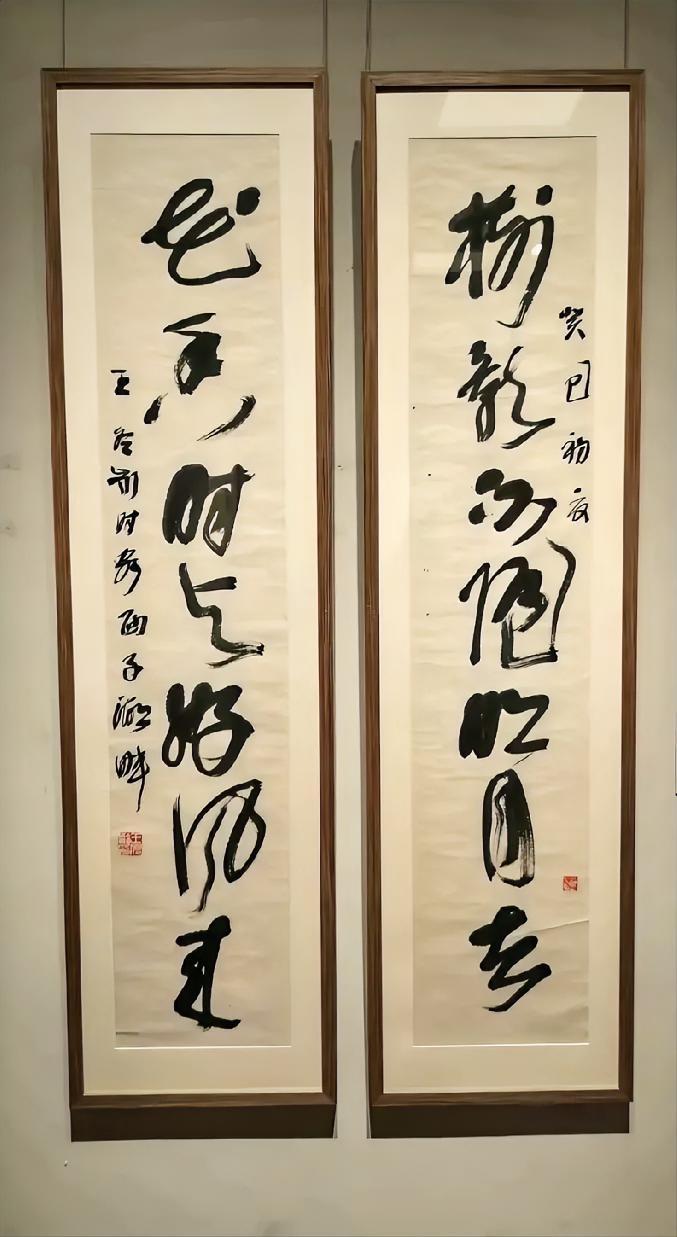 癸巳初夏
树影不随明月去
花香时与好风来
王冬龄时客西子湖畔